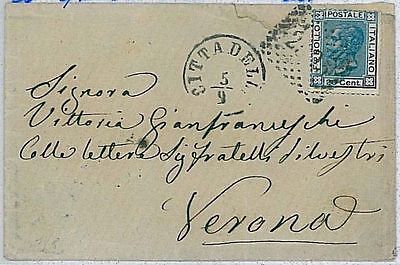 CITTADELL
5
9
FR BOLLO
POSTALE
ITALIANO
20 Cent.
Signora
Vittoria Gianfranceschi
Colle lettera Sig fratelli Silvestri
Verona